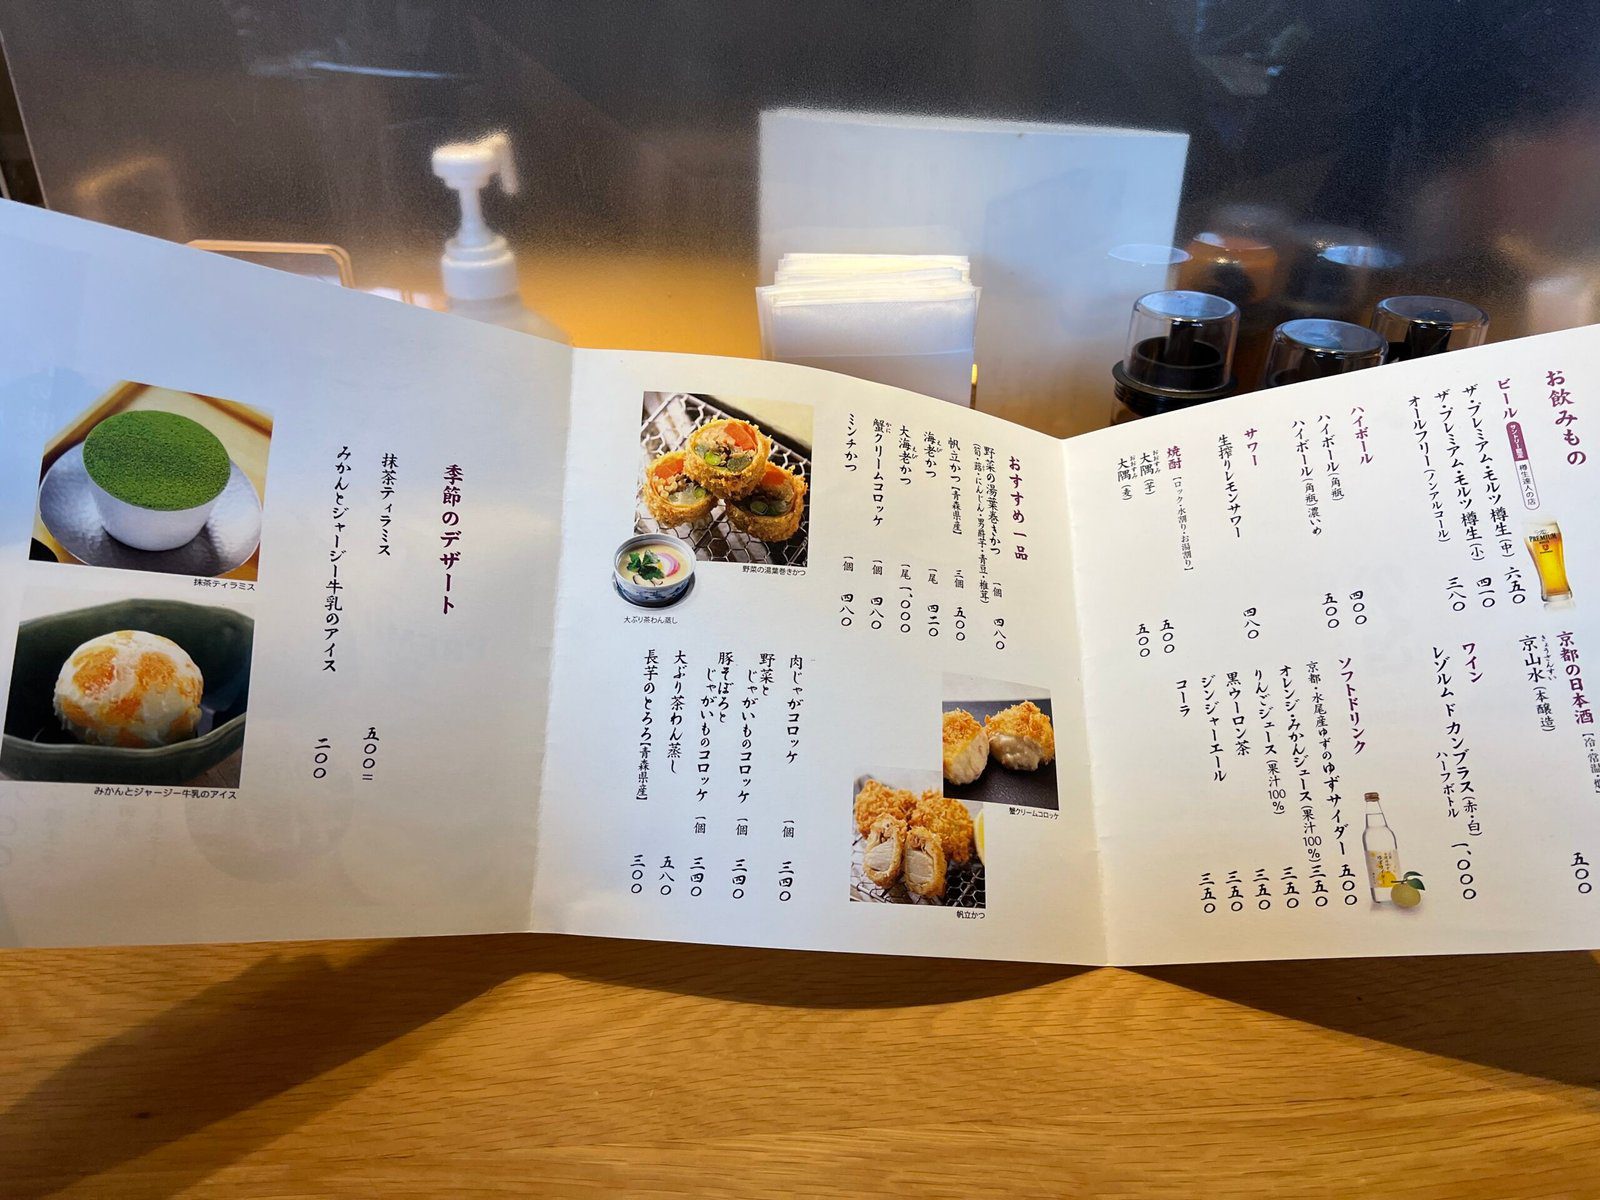 お飲みもの
ビール
サントリー認定
樽生達人の店
ザ・プレミアム・モルツ樽生(中) 六五〇
ザ・プレミアム・モルツ樽生(小) 四一〇
オールフリー(ノンアルコール) 三八〇
ハイボール
ハイボール(角瓶) 四〇〇
ハイボール(角瓶)濃いめ 五〇〇
サワー
生搾りレモンサワー 四八〇
焼酎【ロック・水割り・お湯割り】
大隅(芋) 五〇〇
大隅(麦) 五〇〇
京都の日本酒
きょうざんすい
京山水(本醸造) 五〇〇
ワイン
レゾルム ド カンブラス(赤・白)
ハーフボトル 一、〇〇〇
ソフトドリンク
京都・水尾産ゆずのゆずサイダー 五〇〇
オレンジ・みかんジュース(果汁100%) 三五〇
りんごジュース(果汁100%) 三五〇
黒ウーロン茶 三五〇
ジンジャーエール 三五〇
コーラ 三五〇
PREMIUM
おすすめ一品
野菜の湯葉巻きかつ 一個 四八〇
帆立かつ【青森県産】 三個 五〇〇
海老かつ 一尾 四二〇
大海老かつ 一尾 一、〇〇〇
蟹クリームコロッケ 一個 四八〇
ミンチかつ 一個 四八〇
野菜の湯葉巻きかつ
大ぶり茶わん蒸し
肉じゃがコロッケ 一個 三四〇
野菜と
じゃがいものコロッケ 一個 三四〇
豚そぼろと
じゃがいものコロッケ 一個 三四〇
大ぶり茶わん蒸し 五八〇
長芋のとろろ【青森県産】 三〇〇
蟹クリームコロッケ
帆立かつ
季節のデザート
抹茶ティラミス 五〇〇
みかんとジャージー牛乳のアイス 二〇〇
抹茶ティラミス
みかんとジャージー牛乳のアイス